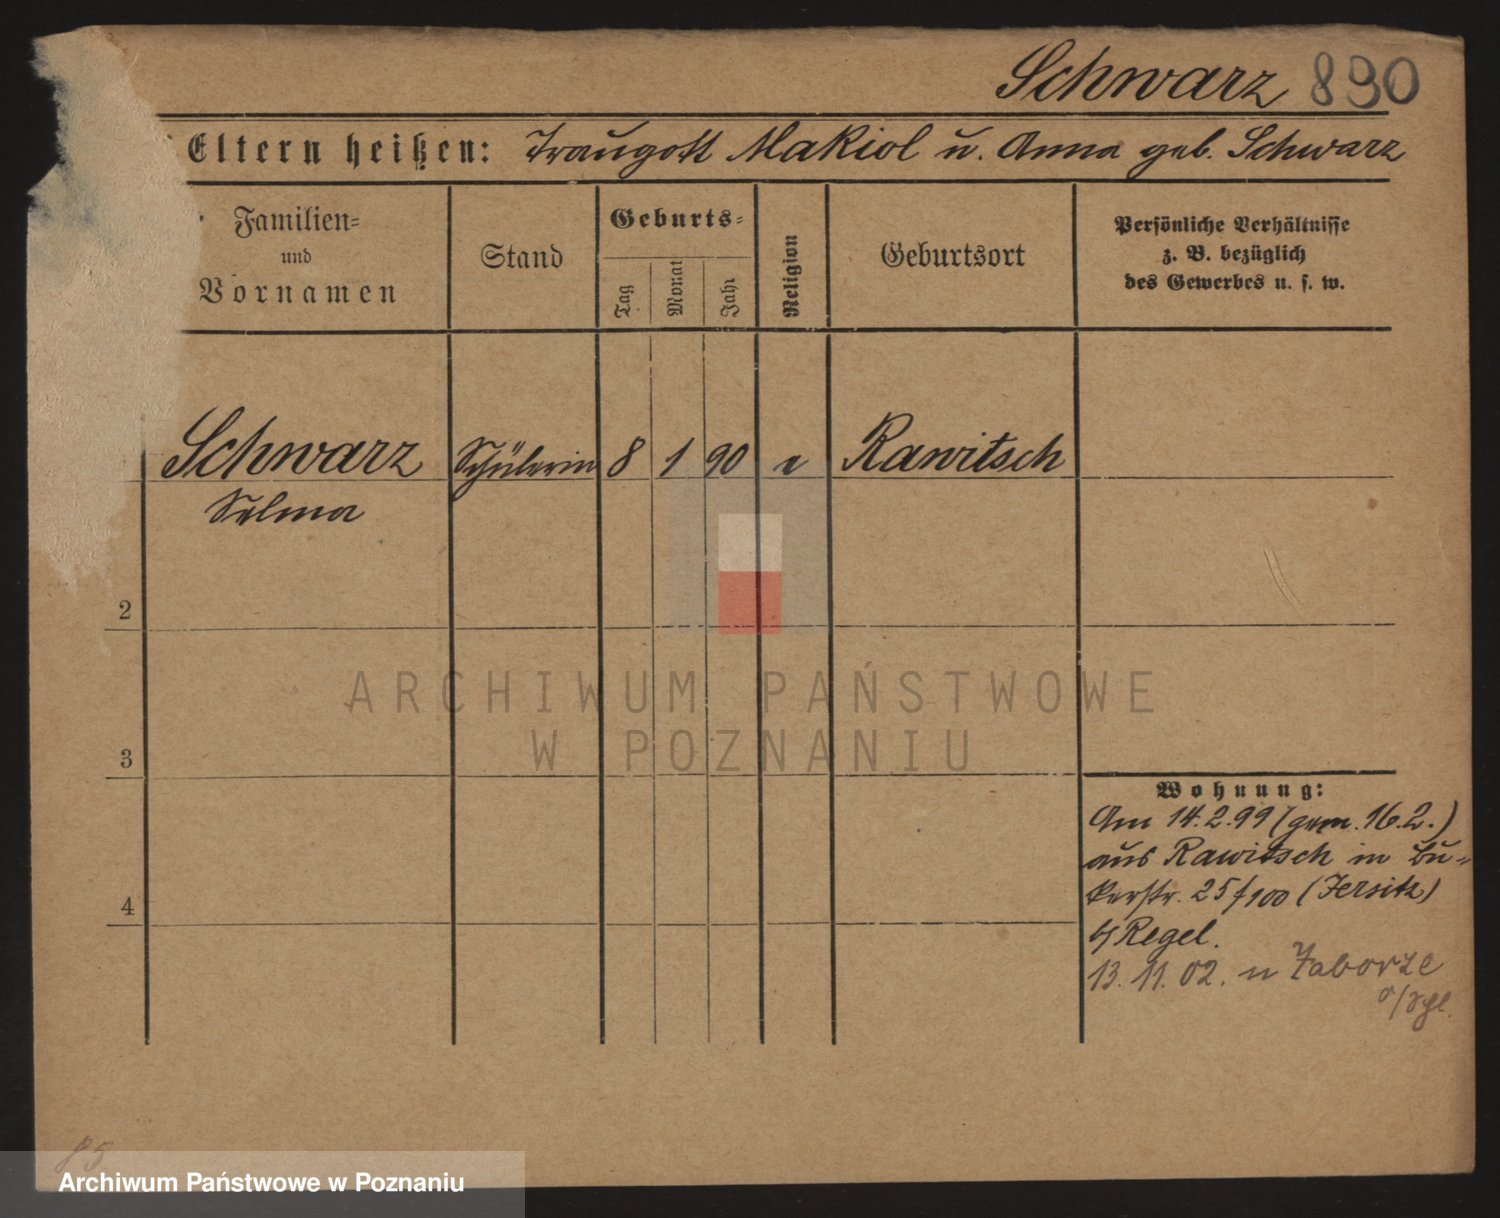 Schwarz 890
Eltern heißen: Traugott Makiol u. Anna geb. Schwarz
Familien-
und
Vornamen
Stand
Geburts-
Tag
Monat
Jahr
Religion
Geburtsort
Persönliche Verhältnisse
z. B. bezüglich
des Gewerbes u. s. w.
Schwarz Schülerin 8 1 90 e Rawitsch
Selma
2
3
4
Wohnung:
Am 14.2.99 (gem. 16.2.)
aus Rawitsch in Bu-
kerstr. 25/100 (Jersitz)
b/ Regel.
13. 11. 02. n Zaborze
o/Schl.
85
ARCHIWUM PAŃSTWOWE
W POZNANIU
Archiwum Państwowe w Poznaniu